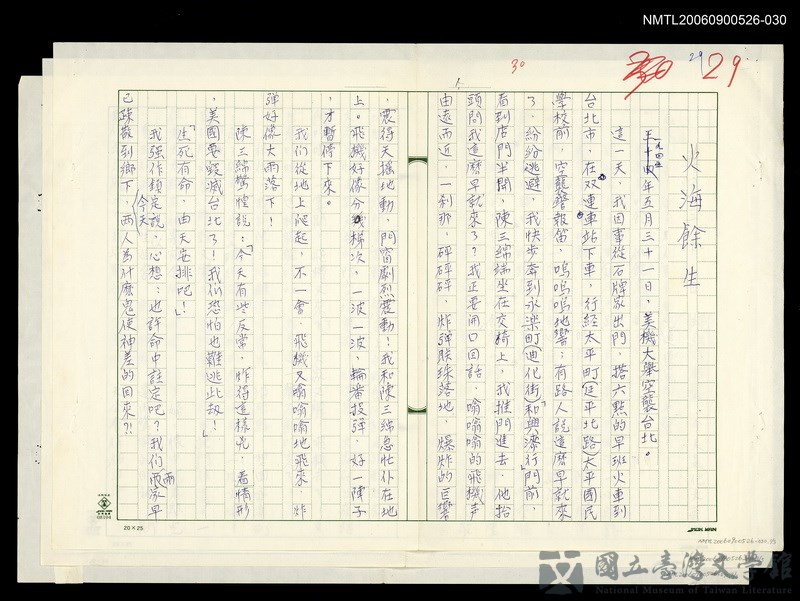 NMTL20060900526-030
29
29
30
火海餘生
一九四五年五月三十一日，美機大舉空襲台北。
這一天，我因事從石牌家出門，搭六點的早班火車到
台北市，在双連車站下車，行經太平町(延平北路)太平國民
學校前，空襲警報笛，嗚嗚嗚地響；有路人說這麼早就來
了，紛紛逃避，我快步奔到永樂町(迪化街)「和興濟行」門前，
看到店門半開，陳三綿端坐在交椅上，我推門進去，他抬
頭問我這麼早就來了？我正要開口回話，嗡嗡嗡的飛機声
由遠而近，一剎那，砰砰砰，炸弹聯珠落地，爆炸的巨響
，震得天搖地動，門窗劇烈震動！我和陳三綿急忙仆在地
上。飛機好像分梯次，一波一波，輪番投彈，好一陣子
，才暫停下來。
我們從地上爬起，不一會，飛機又嗡嗡嗡地飛來，炸
弹好像大雨落下！
陳三綿驚惶說：「今天有些反常，炸得這樣兇，看情形
，美國要毀滅台北了！我們恐怕也難逃此劫！」
「生死有命，由天安排吧！」
我强作鎮定說，心想：也許命中註定吧？我們兩家早
已疎散到鄉下，今天兩人為什麼鬼使神差的回來？！
20×25
NMTL20060900526-030
國立臺灣文學館
National Museum of Taiwan Literature